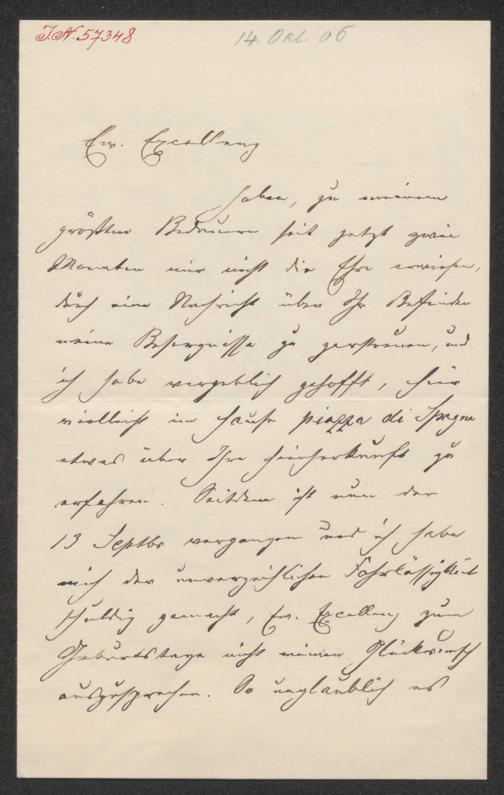 I.N. 57348
14. Okt. 06
Ew. Excellenz
haben, zu meinem
größten Bedauern seit jetzt zwei
Monaten mir nicht die Ehre erwiesen,
durch eine Nachricht über Ihr Befinden
meine Besorgnisse zu zerstreuen, und
ich habe vergeblich gehofft, hier
vielleicht im Hause piazza di Spagna
etwas über Ihre Hierherkunft zu
erfahren. Seitdem ist nun der
13 Septbr vergangen und ich habe
mich der unverzeihlichen Fahrlässigkeit
schuldig gemacht, Ew. Excellenz zum
Geburtstage nicht meinen Glückwunsch
auszusprechen. So unglaublich es